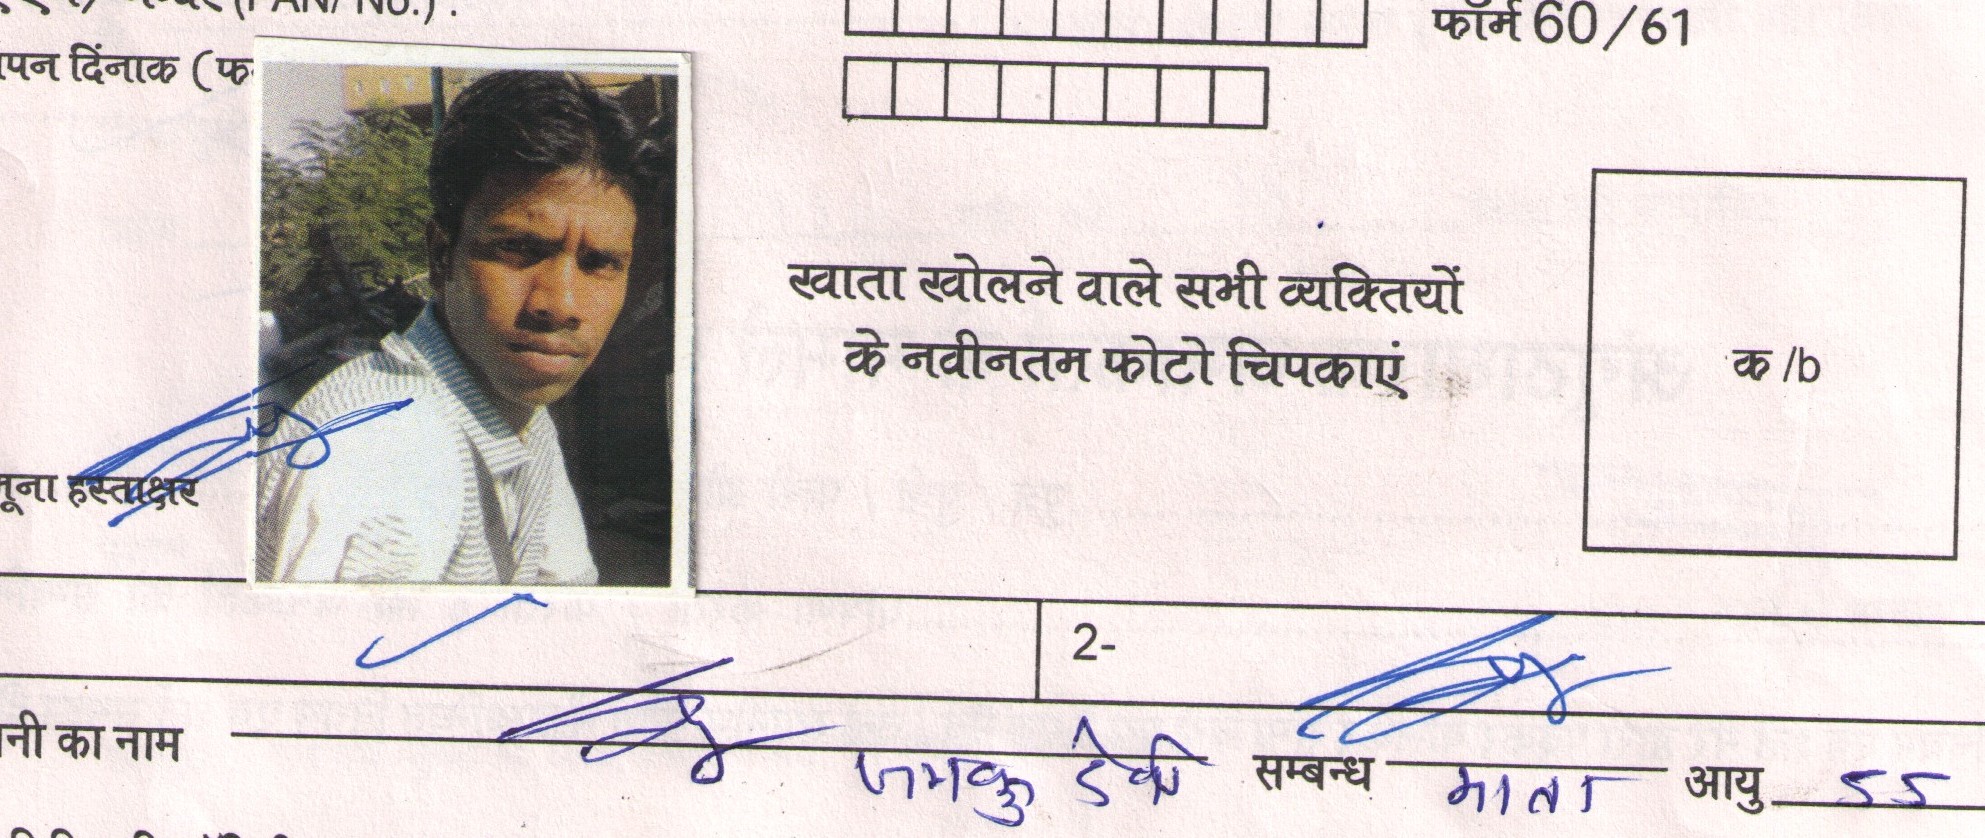 (PAN/ No.) :
फॉर्म 60/61
दिंनाक (फ
खाता खोलने वाले सभी व्यक्तियों
के नवीनतम फोटो चिपकाएं
क /b
हस्ताक्षर
2-
का नाम देवी सम्बन्ध माता आयु 55